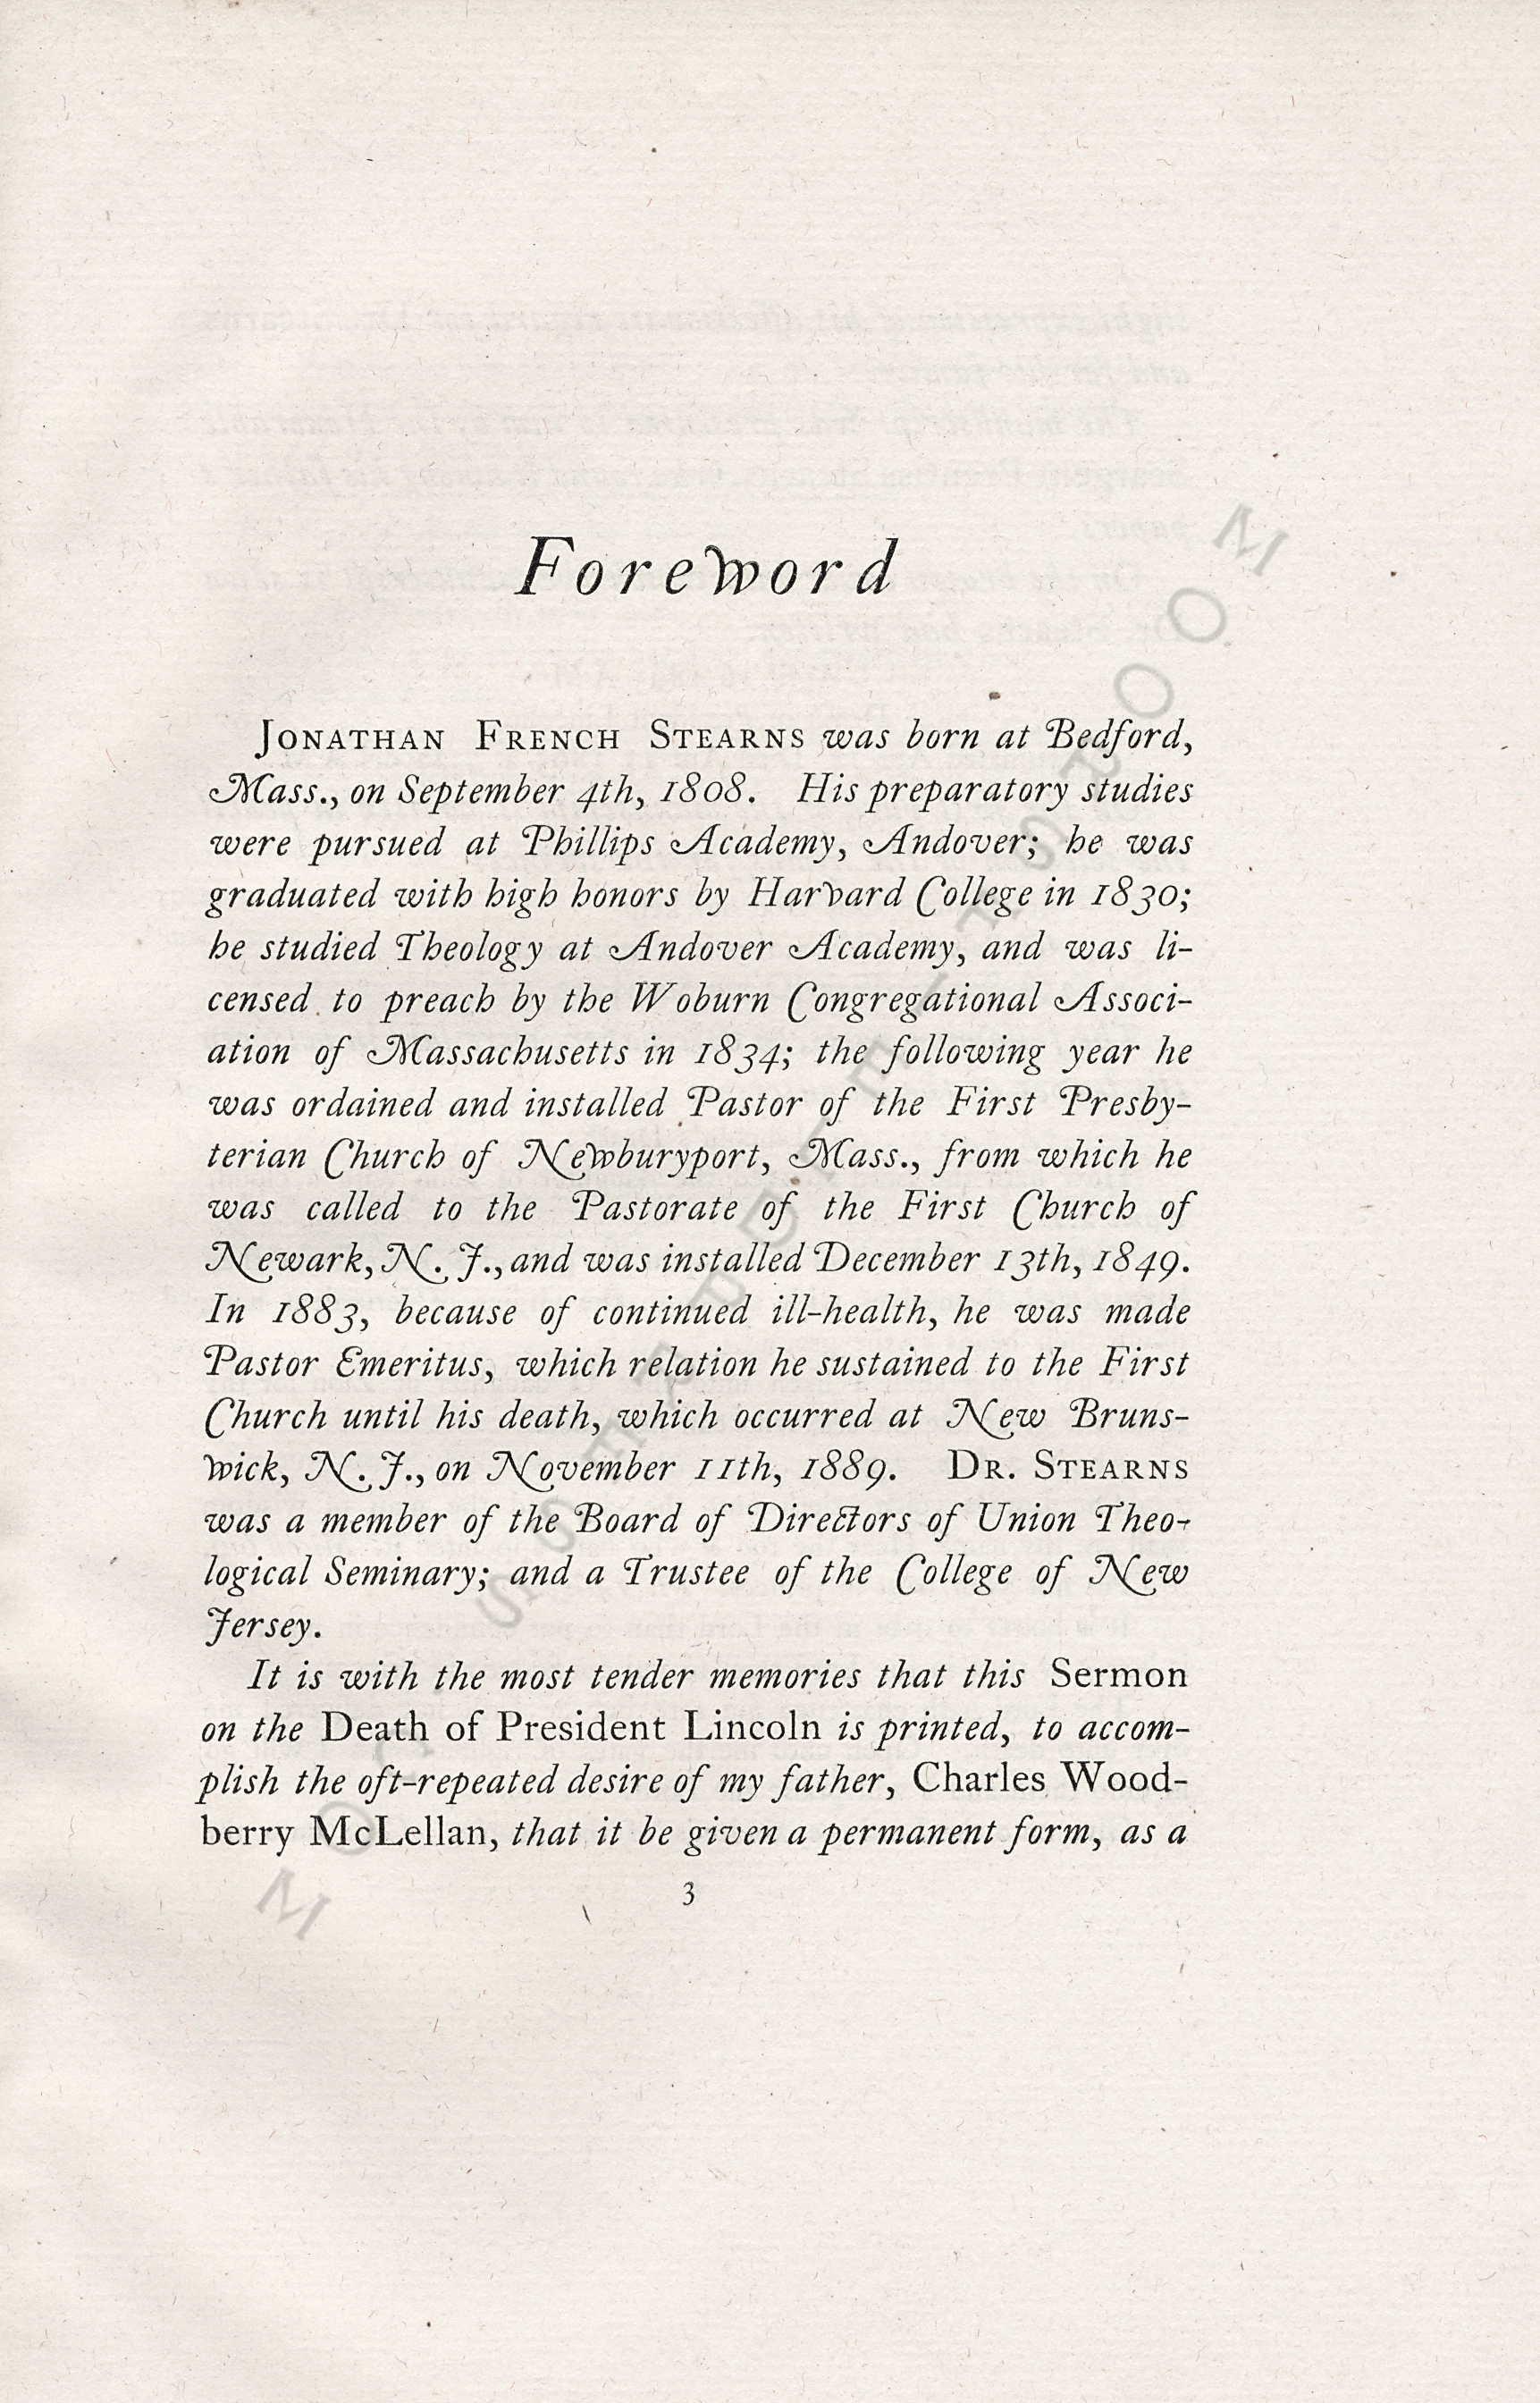 Foreword
JONATHAN FRENCH STEARNS was born at Bedford,
Mass., on September 4th, 1808. His preparatory studies
were pursued at Phillips Academy, Andover; he was
graduated with high honors by Harvard College in 1830;
he studied Theology at Andover Academy, and was li-
censed to preach by the Woburn Congregational Associ-
ation of Massachusetts in 1834; the following year he
was ordained and installed Pastor of the First Presby-
terian Church of Newburyport, Mass., from which he
was called to the Pastorate of the First Church of
Newark, N. J., and was installed December 13th, 1849.
In 1883, because of continued ill-health, he was made
Pastor Emeritus, which relation he sustained to the First
Church until his death, which occurred at New Bruns-
wick, N. J., on November 11th, 1889. DR. STEARNS
was a member of the Board of Directors of Union Theo-
logical Seminary; and a Trustee of the College of New
Jersey.
It is with the most tender memories that this Sermon
on the Death of President Lincoln is printed, to accom-
plish the oft-repeated desire of my father, Charles Wood-
berry McLellan, that it be given a permanent form, as a
3